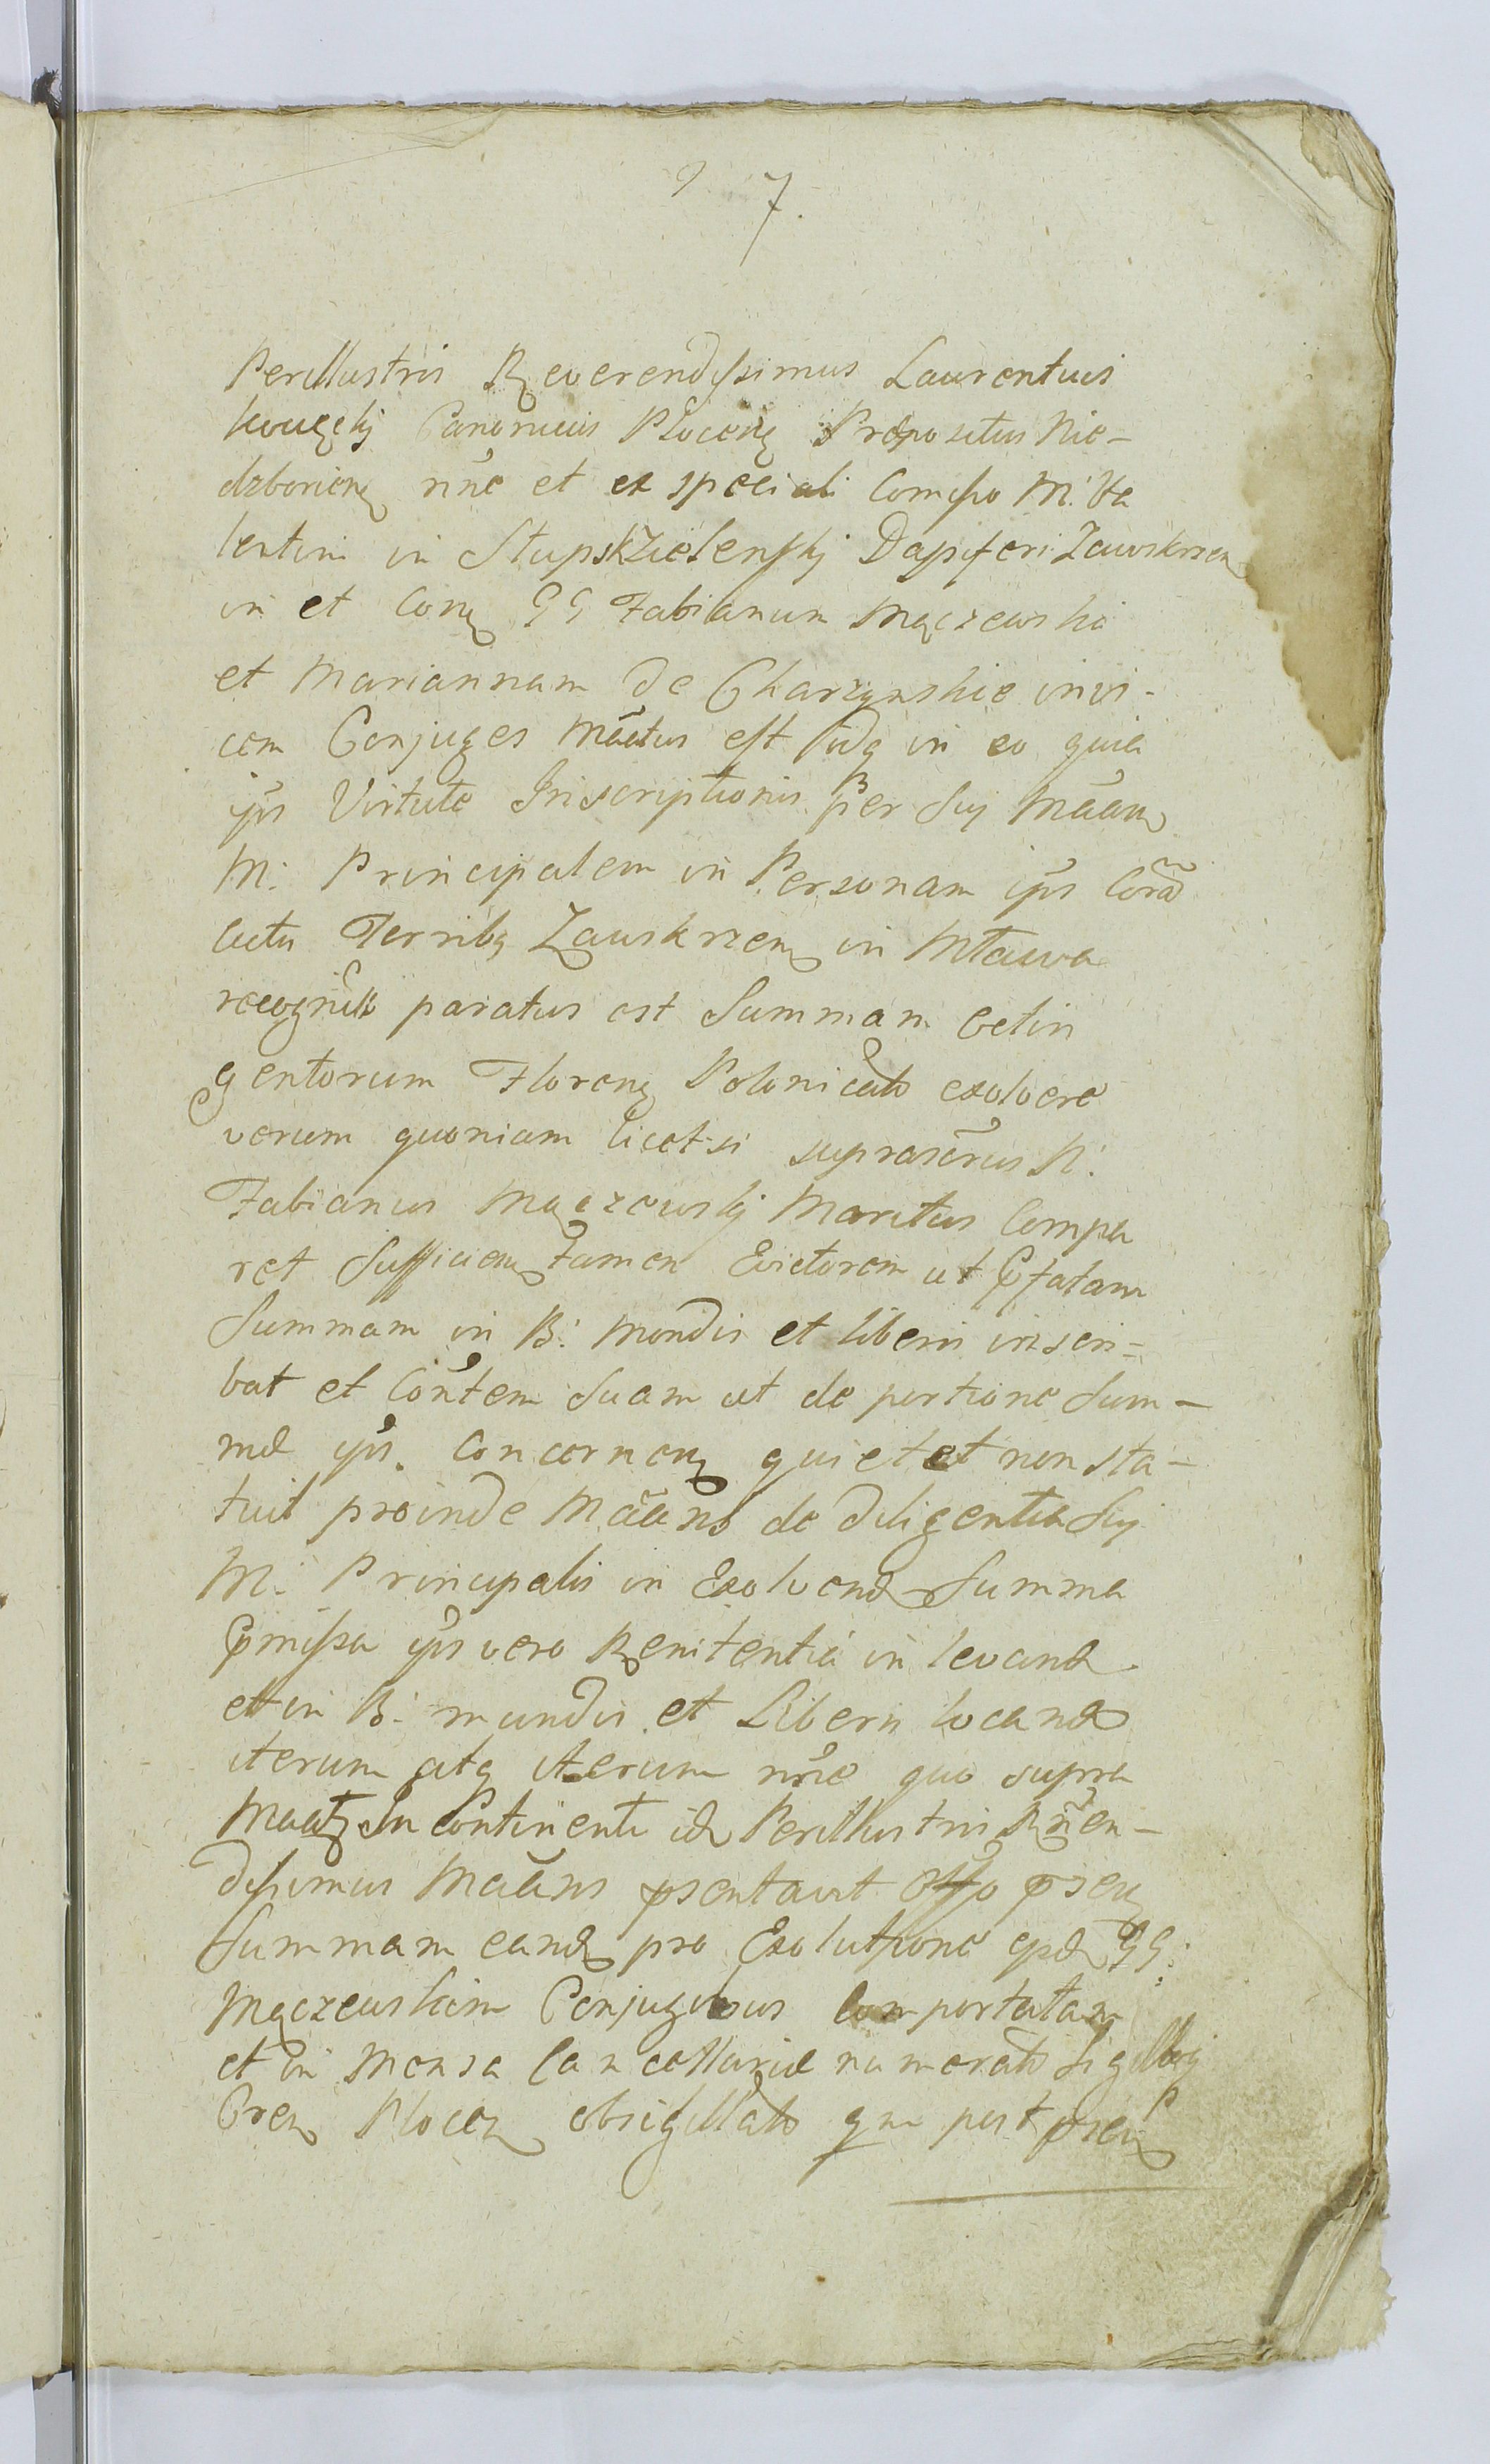 7.
Perillustris Reverendissimus Laurentius
Canonicus Plocen Præpositus Nie-
dzborien nńc et ex speciali Comisso M: Va
lentini in Słupsk Zielenskj Dapiferi Zawskrzen
in et Con GG Fabianum Mączewski
et Mariannam de Charzynskie invi-
cem Conjuges Mãtus est idq in eo quia
ipś Virtute Inscriptionis per Suj Mãam
M: Principalem in Personam ipś Corã
actis Terrib Zawskrzen in Mława
paratus est Summam
gentorum Floren Polonical exolvere
verum quoniam licet si suprascrus N:
Fabianus Mączewskj Maritus Compa
ret Sufficien tamen Evictorem ut pfatam
Summam in B: Mundis et liberis inscri-
bat et Cońtem Suam ut de portione Sum-
mæ ipś. Concernen quietet non sta-
tuit proinde Mããns de diligentia Suj
M: Principalis in Exolvend Summa
pmissa ipś vero Renitentiá in levand
et in B: mundis et Liberis locand
iterum atq iterum nńc quo supra
In Continenti id Perillustris Rńen-
dissimus Mããns psentavit Offo psen
Summam eand pro Exolutione epd GG:
Mączewskim Conjugibus Comportatam
et in Mensa Cancellariæ numerat Sigilloq
Cren Plocen obsigillat qm post psen